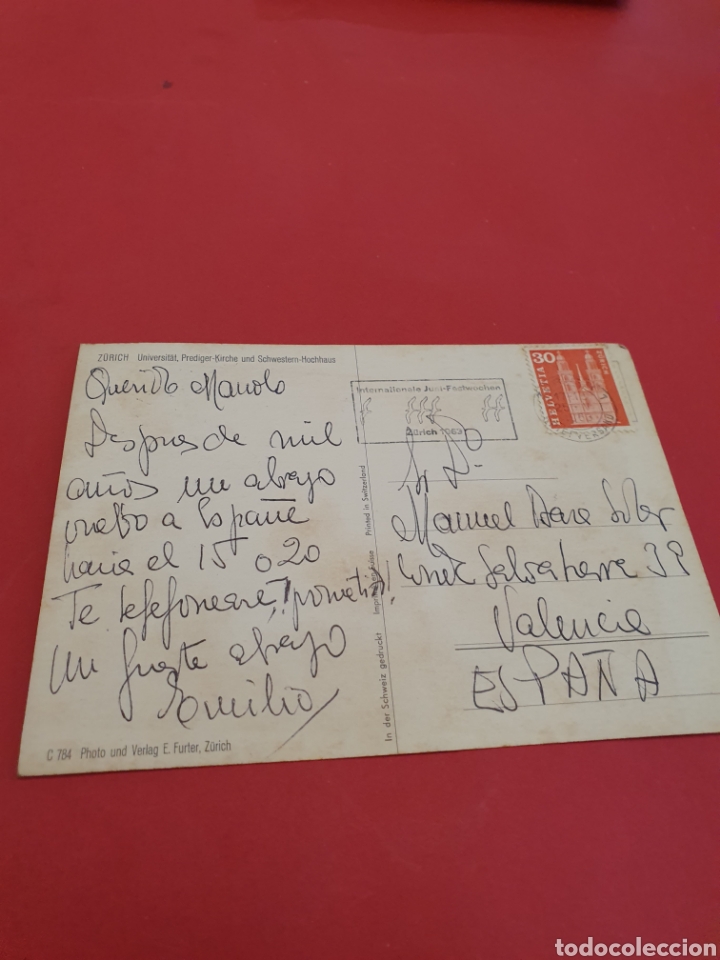 ZÜRICH Universität, Prediger-Kirche und Schwestern-Hochhaus
Querido Manolo
Despues de mil
años un abrazo
vuelvo a España
hacia el 15 o 20
Te telefoneare ¡prometido!
Un fuerte abrazo
Emilio
C 784 Photo und Verlag E. Furter, Zürich
In der Schweiz gedruckt Imprimé en Suisse Printed in Switzerland
Internationale Juni-Festwochen
Zürich
HELVETIA 30
ZÜRICH
Sr. D.
Manuel Soler
Salvatierra 39
Valencia
ESPAÑA
todocoleccion